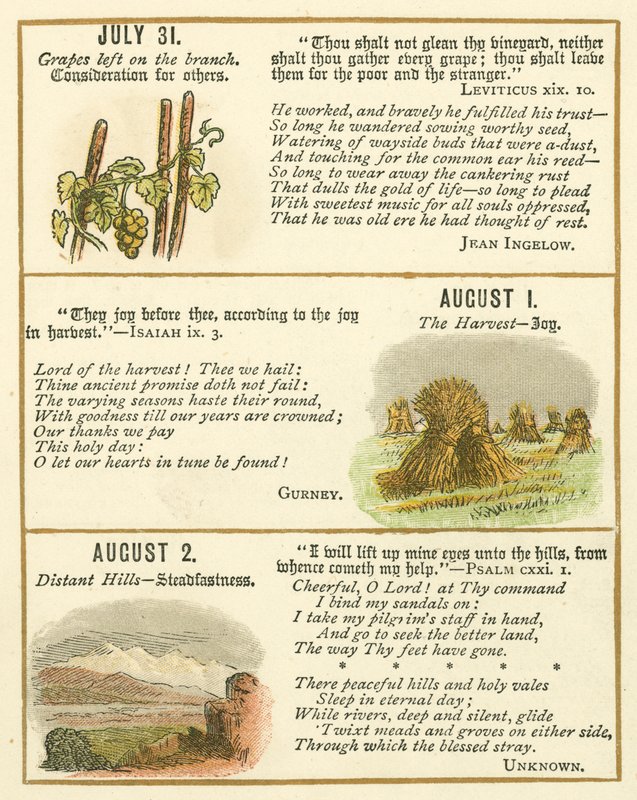 JULY 31.
Grapes left on the branch.
Consideration for others.
"Thou shalt not glean thy vineyard, neither
shalt thou gather every grape; thou shalt leave
them for the poor and the stranger."
LEVITICUS xix. 10.
He worked, and bravely he fulfilled his trust—
So long he wandered sowing worthy seed,
Watering of wayside buds that were a-dust,
And touching for the common ear his reed—
So long to wear away the cankering rust
That dulls the gold of life—so long to plead
With sweetest music for all souls oppressed,
That he was old ere he had thought of rest.
JEAN INGELOW.
AUGUST 1.
The Harvest—Joy.
"They joy before thee, according to the joy
in harvest."—ISAIAH ix. 3.
Lord of the harvest! Thee we hail:
Thine ancient promise doth not fail:
The varying seasons haste their round,
With goodness till our years are crowned;
Our thanks we pay
This holy day:
O let our hearts in tune be found!
GURNEY.
AUGUST 2.
Distant Hills—Steadfastness.
"I will lift up mine eyes unto the hills, from
whence cometh my help."—PSALM cxxi. 1.
Cheerful, O Lord! at Thy command
I bind my sandals on:
I take my pilgrim's staff in hand,
And go to seek the better land,
The way Thy feet have gone.
* * * * *
There peaceful hills and holy vales
Sleep in eternal day;
While rivers, deep and silent, glide
'Twixt meads and groves on either side,
Through which the blessed stray.
UNKNOWN.